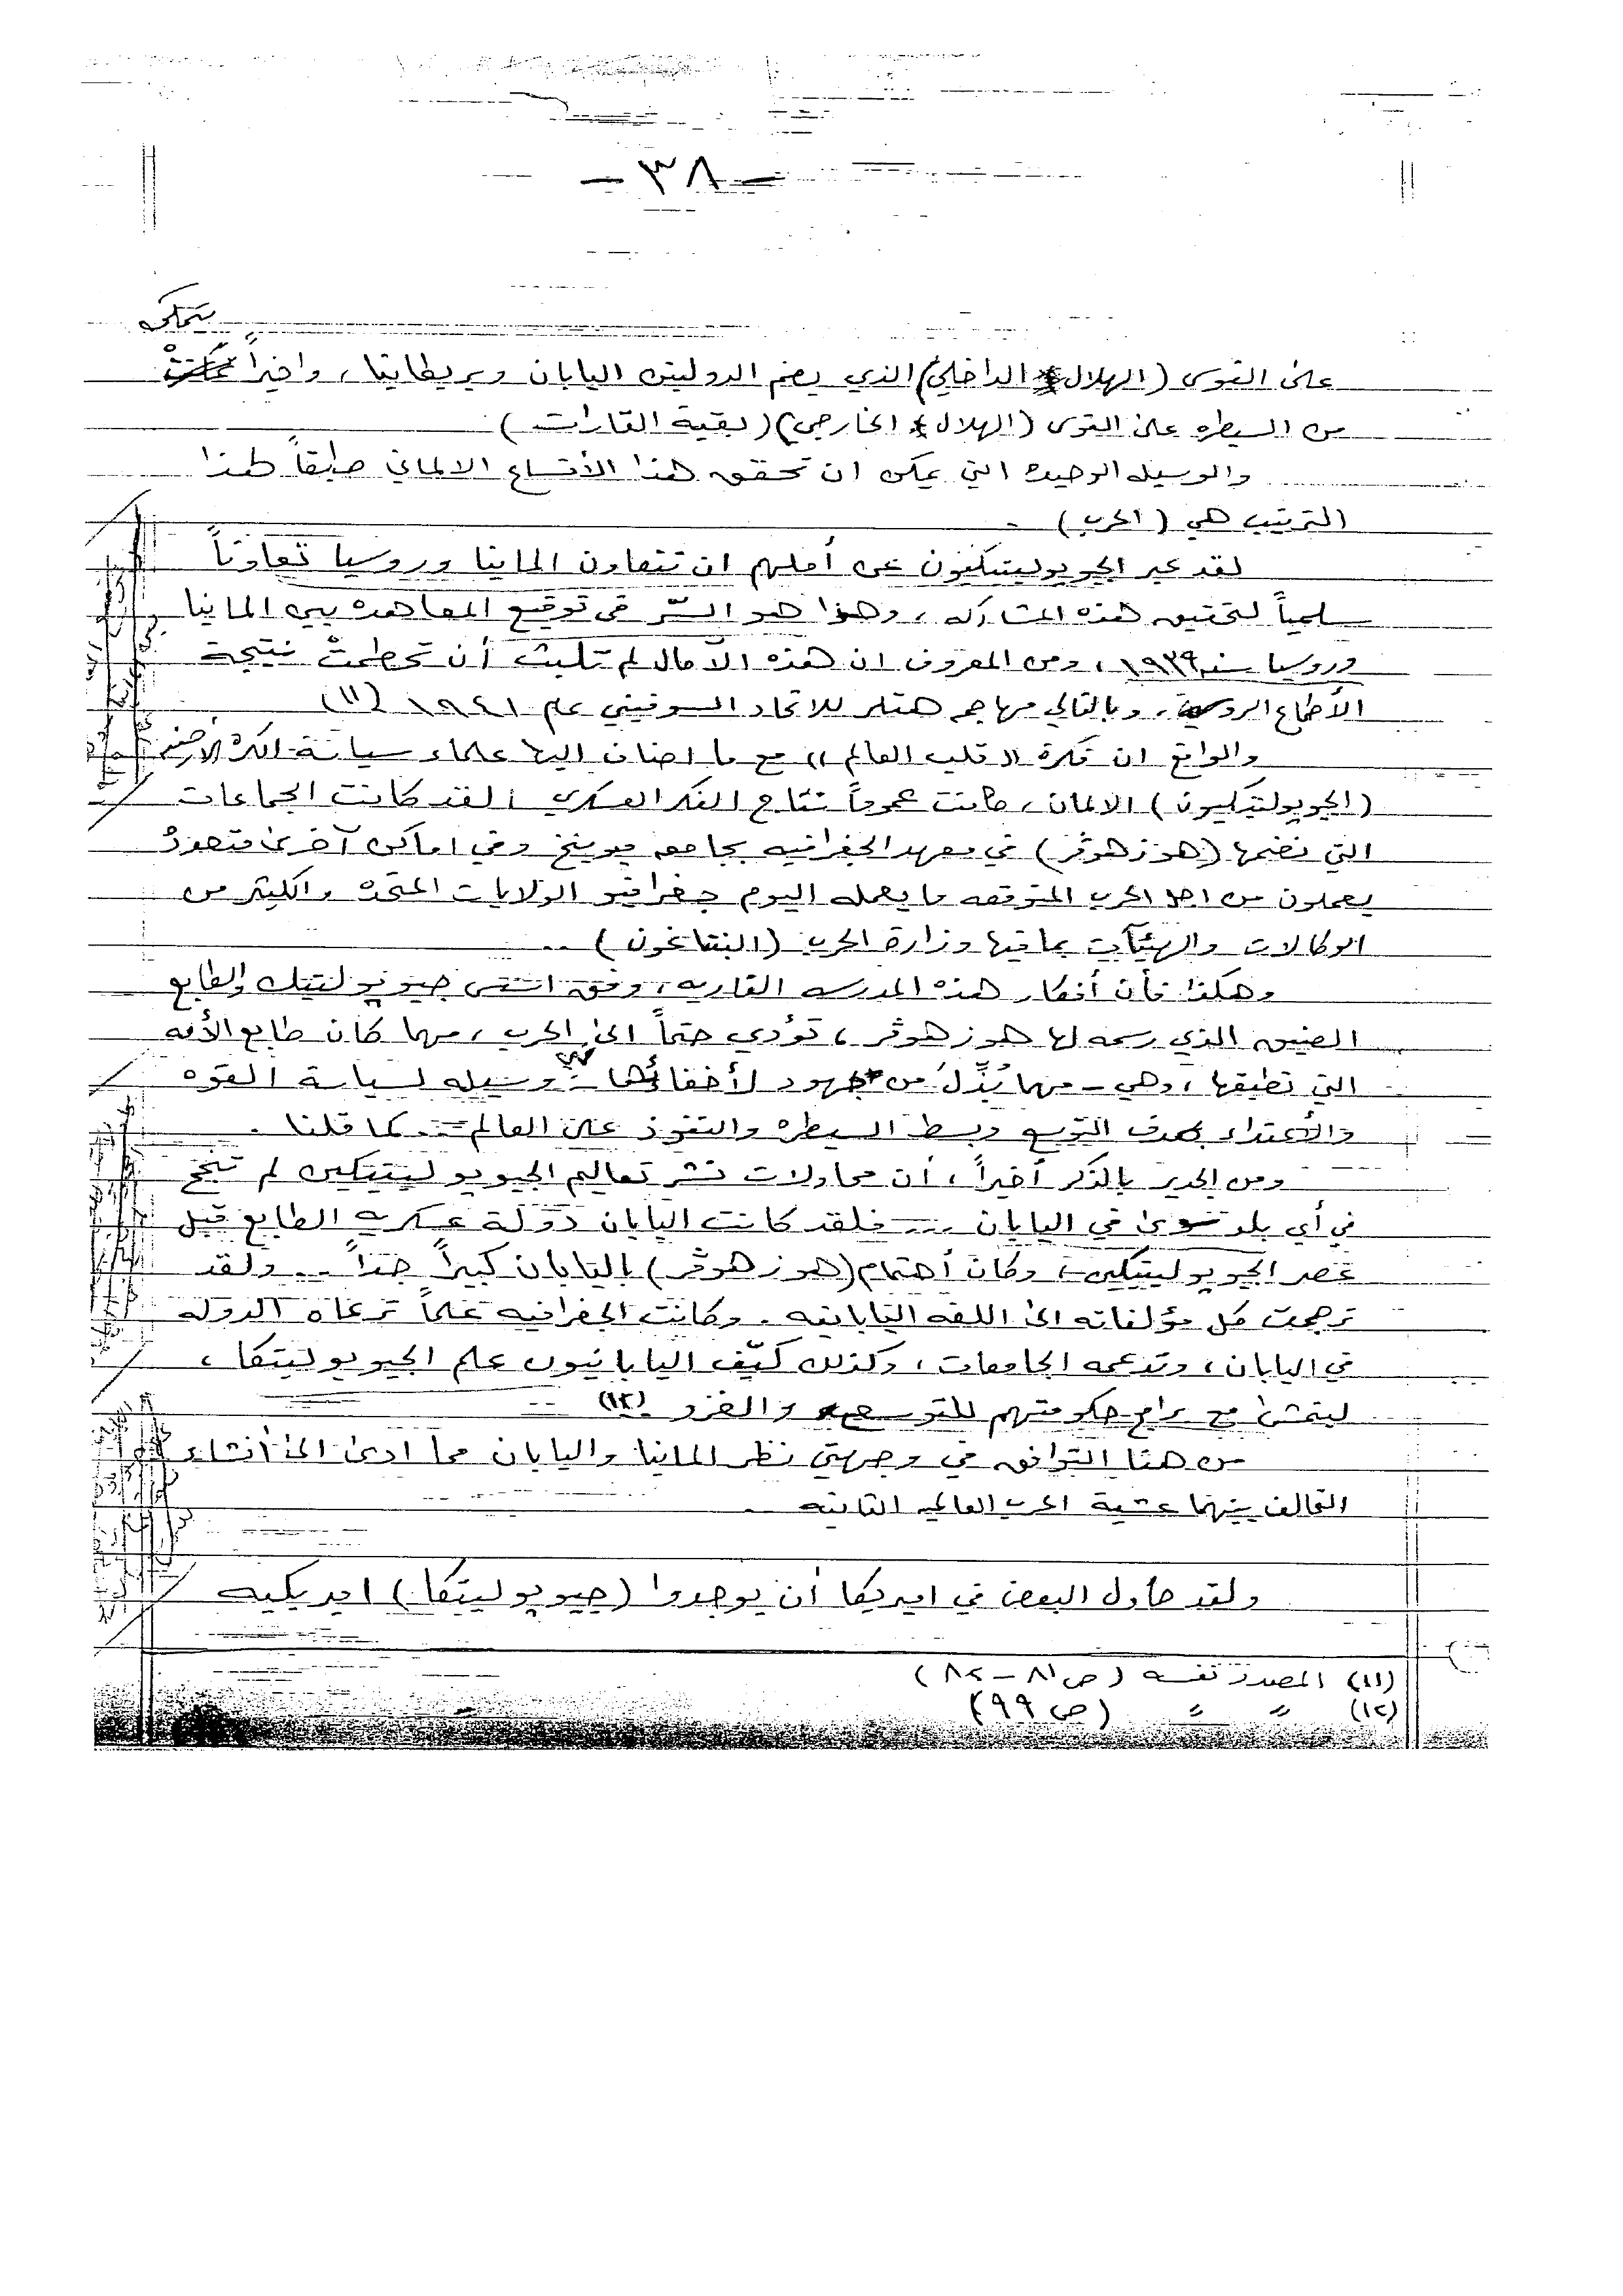 -٣٨-
تتمكن
على القوس (الهلال الداخلي) الذي يضم الدولتين اليابان وبريطانيا، واخيراً
من السيطره على القوس (الهلال الخارجي) (بقية القارات)
والوسيله الوحيده التي يمكن ان تحقق هذا الأتساع الالماني طبقاً لهذا
الترتيب هي (الحرب) .
لقد عبر الجيوبوليتيكيون عن أملهم ان تتعاون المانيا وروسيا تعاوناً
سلمياً لتحقيق هذه المشاركه، وهذا هو السّر في توقيع المعاهده بين المانيا
وروسيا سنه ١٩٣٩، ومن المعروف ان هذه الآمال لم تلبث أن تحطمتْ نتيجة
الأطماع الروسية، وبالتالي مهاجمه هتلر للاتحاد السوفيتي عام ١٩٤١ (١١)
والواقع ان فكرة «قلب العالم» مع ما اضاف اليها علماء سياسة الكره الارضيه
(الجيوبولتيكيون) الالمان، كانت عموماً نتاج الفكر العسكري لقد كانت الجماعات
التي نضمها (هوزهوفر) في معهد الجغرافيه بجامعه ميونيخ وفي اماكن آخرى متعددة
يعملون من اجل الحرب المتوقعه ما يعمله اليوم جغرافيو الولايات المتحده والكثير من
الوكالات والهيئآت بما فيها وزارة الحرب (البنتاغون) ..
وهكذا فأن أفكار هذه المدرسه القاريه، وفق اسس جيوبولتيك والطابع
الضيق الذي رسمه لها هوزهوفر، تؤدي حتماً الى الحرب، مهما كان طابع الأمه
التي تطبقها، وهي - مهما بُذِّلَ من جهود لأخفائها - وسيله لسياسة القوه
والأعتداء بهدف التوسع وبسط السيطره والنفوذ على العالم .. كما قلنا .
ومن الجدير بالذكر أخيراً، أن محاولات نشر تعاليم الجيوبوليتيكين لم تنجح
في أي بلد سوى في اليابان ... فلقد كانت اليابان دولة عسكريه الطابع قبل
عصر الجيوبوليتيكين، وكان أهتمام (هوزهوفر) باليابان كبيراً جداً .. ولقد
ترجمت كل مؤلفاته الى اللغه اليابانيه . وكانت الجغرافيه علماً ترعاه الدوله
في اليابان، وتدعمه الجامعات، وكذلك كيّف اليابانيون علم الجيوبوليتكا،
ليتمشى مع برامج حكومتهم للتوسع والغزو (١٢) ..
من هنا التوافق في وجهتي نظر المانيا واليابان مما ادى الى أنشاء
التحالف بينهما عشية الحرب العالميه الثانيه ..
ولقد حاول البعض في امريكا أن يوجدوا (جيوبوليتكا) امريكيه
(١١) المصدر نفسه (ص ٨١ - ٨٢)
(١٢) " " (ص ٩٩)